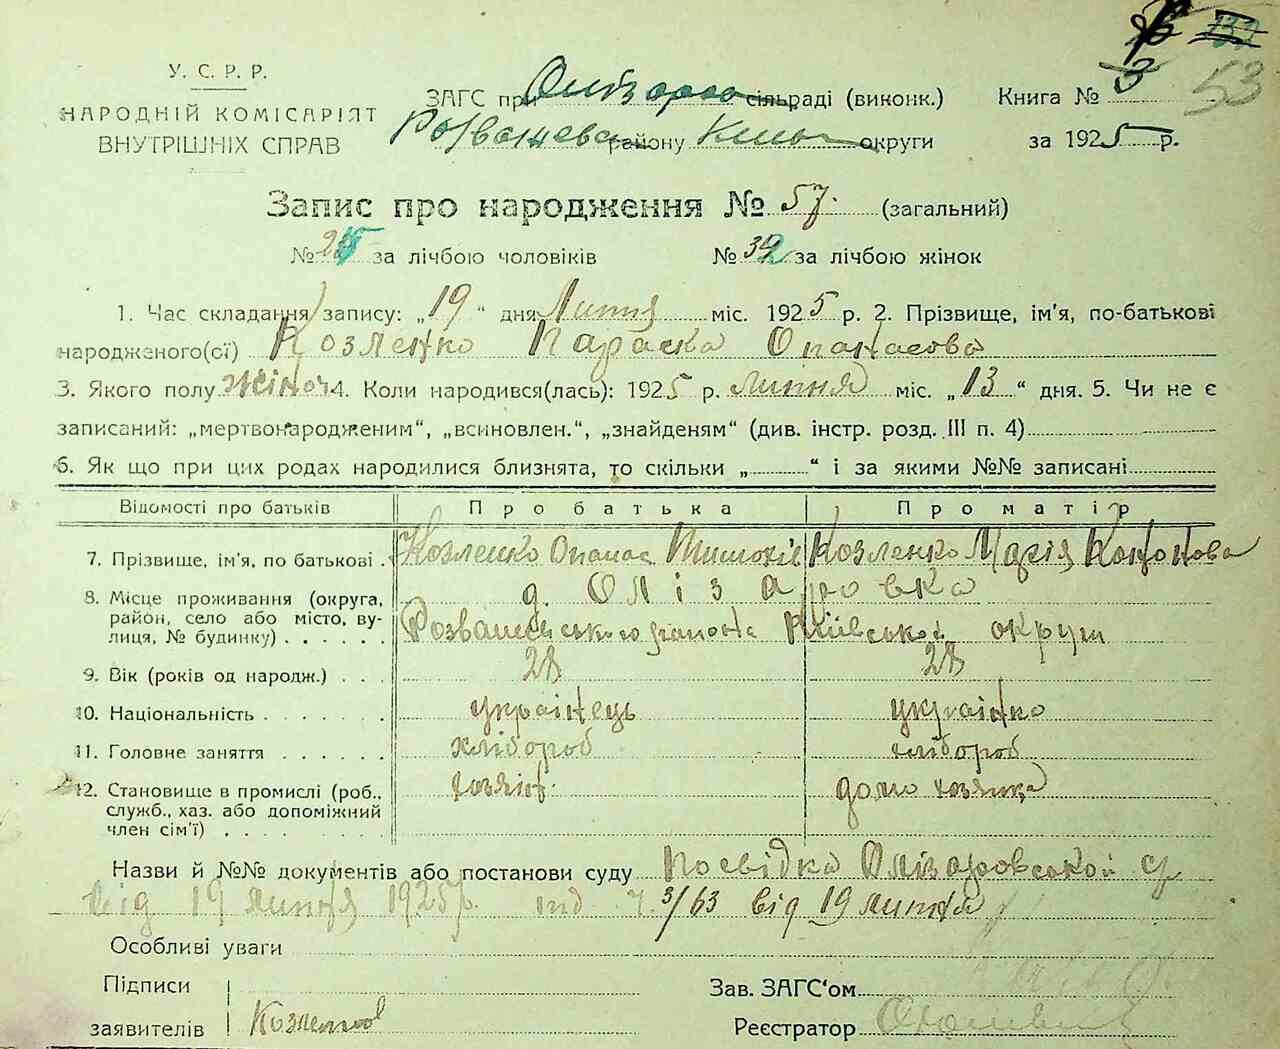 У. С. Р. Р.
НАРОДНІЙ КОМІСАРІЯТ
ВНУТРІШНІХ СПРАВ
ЗАГС при сільраді (виконк.)
району округи
Книга № 3
53
за 1925 р.
Запис про народження № 57. (загальний)
№ 25 за лічбою чоловіків № 32 за лічбою жінок
1. Час складання запису: „19“ дня Липня міс. 1925 р. 2. Прізвище, ім'я, по-батькові
народженого(сї) Козленко Параска Опанасова
3. Якого полу жіноч 4. Коли народився(лась): 1925 р. липня міс. „13“ дня. 5. Чи не є
записаний: „мертвонародженим“, „всиновлен.“, „знайденям“ (див. інстр. розд. III п. 4)
6. Як що при цих родах народилися близнята, то скільки „ “ і за якими №№ записані
Відомості про батьків Про батька Про матір
7. Прізвище, ім'я, по батькові . Козленко Опанас Козленко Марія Кононова
8. Місце проживання (округа, район, село або місто, вулиця, № будинку) . . . . . д. Олізаровка
Київської округи
9. Вік (років од народж.) . . . 28 28
10. Національність . . . . . . . українець українка
11. Головне заняття . . . . . хлібороб хлібороб
12. Становище в промислі (роб., служб., хаз. або допоміжний член сім'ї) . . . . . . . хозяїн. домо хозяйка
Назви й №№ документів або постанови суду посвідка Олізаровської с/р
від 19 липня 1925 р. під ч. 3/63 від 19 липня
Особливі уваги
Підписи
заявителів
Зав. ЗАГС'ом
Реєстратор